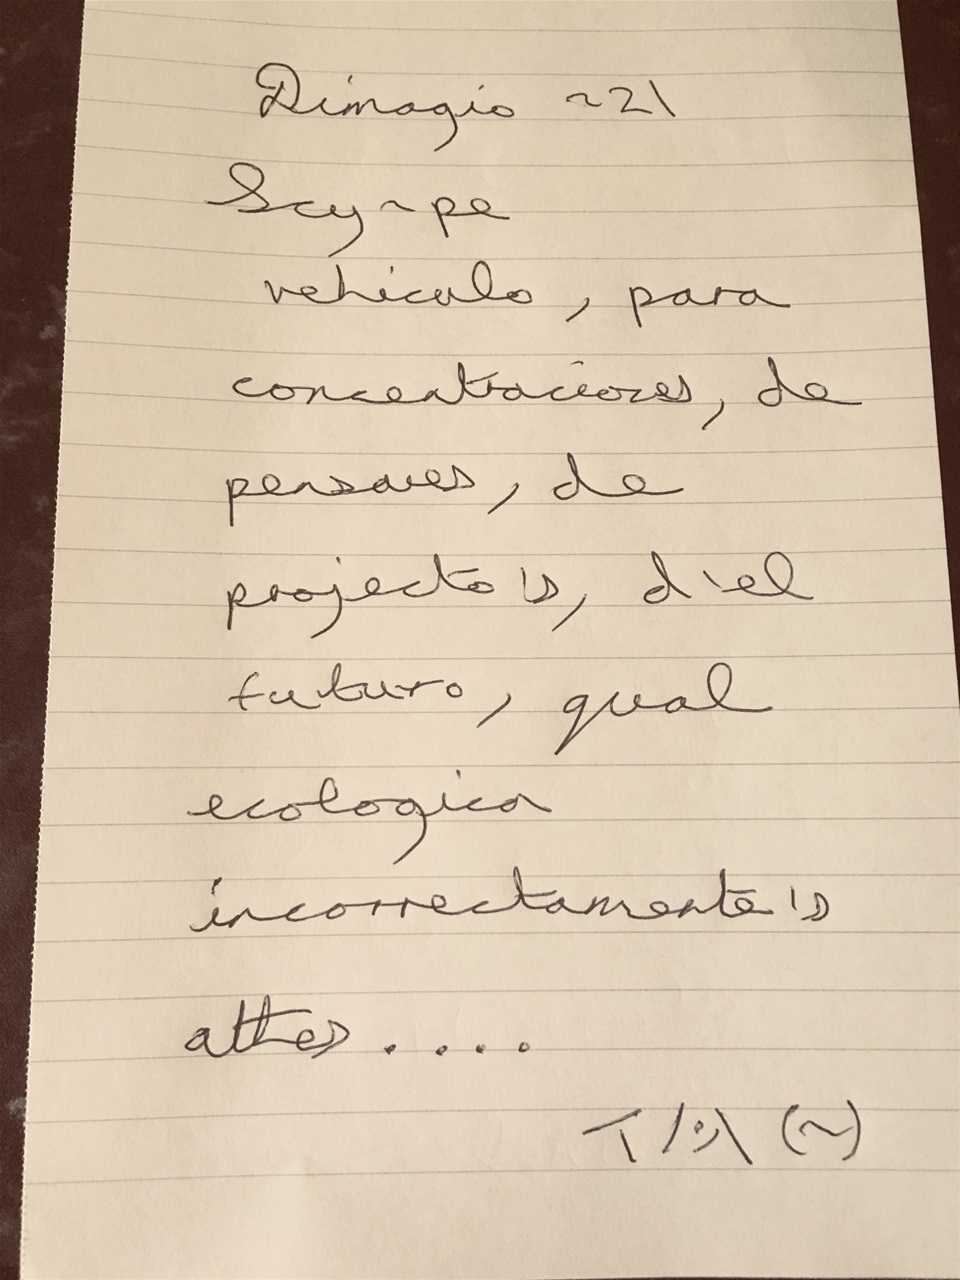 Dimagio ~21
Scy~pe
vehiculo, para
concentraciones, de
pensares, de
projecto's, d'el
futuro, qual
ecologica
incorrectamente's
althes....
(~)